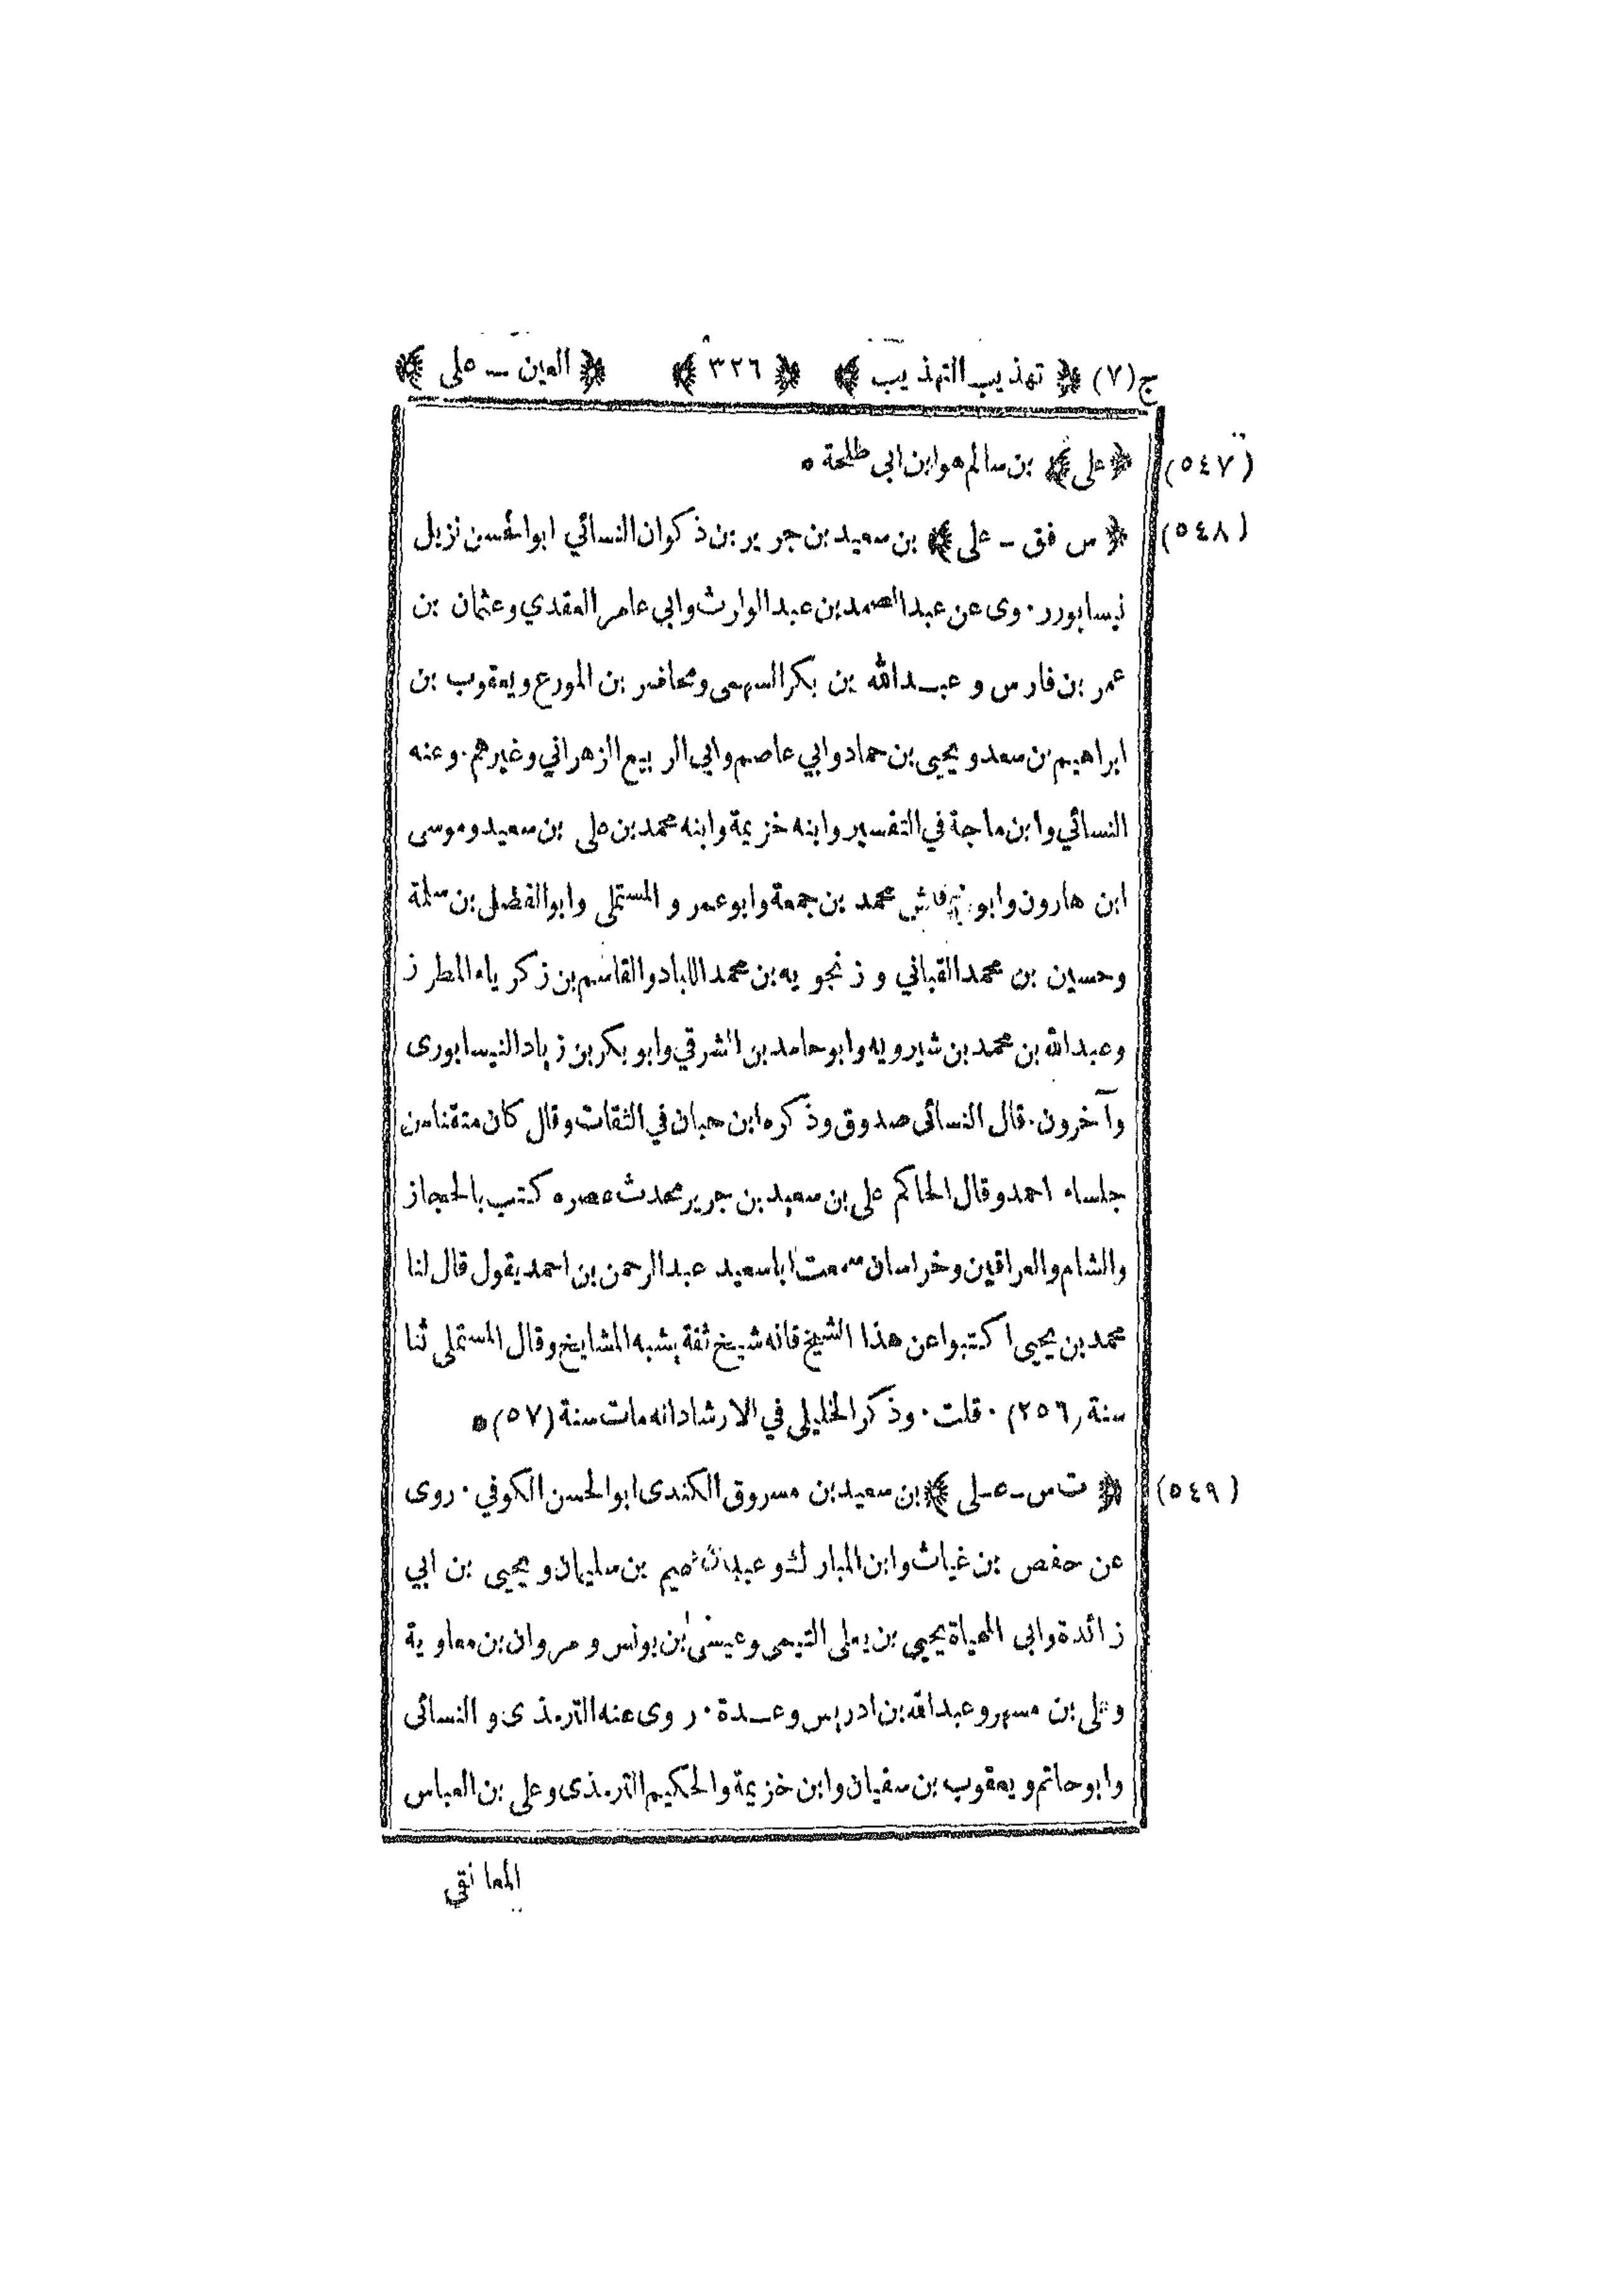 ج(٧) ﴿ تهذيب التهذيب ﴾ ﴿ ٣٢٦ ﴾ ﴿ العين - على ﴾
(٥٤٧) ﴿ على ﴾ بن سالم هو ابن ابي طلحة *
(٥٤٨) ﴿ س فق - على ﴾ بن سعيد بن جرير بن ذكوان النسائي ابو الحسن نزيل
نيسابورر . وى عن عبد الصمد بن عبد الوارث وابي عامر العقدي وعثمان بن
عمر بن فارس و عبد الله بن بكر السهمى ومحاضر بن المورع ويعقوب بن
ابراهيم بن سعد و يحيى بن حماد وابي عاصم وابي الربيع الزهراني وغيرهم . وعنه
النسائي وابن ماجة في التفسير وابنه خزيمة وابنه محمد بن على بن سعيد وموسى
ابن هارون وابو محمد بن جمعة وابو عمر و المستملى وابو الفضل بن سلمة
وحسين بن محمد القباني و زنجويه بن محمد اللباد والقاسم بن زكرياء المطرز
وعبد الله بن محمد بن شيرويه وابو حامد بن الشرقي وابو بكر بن زياد النيسابورى
وآخرون . قال النسائى صدوق وذكره ابن حبان في الثقات وقال كان متقنا من
جلساء احمد وقال الحاكم على بن سعيد بن جرير محدث عصره كتب بالحجاز
والشام والعراقين وخراسان سمعت ابا سعيد عبد الرحمن بن احمد يقول قال لنا
محمد بن يحيى اكتبوا عن هذا الشيخ فانه شيخ ثقة يشبه المشايخ وقال المستملى ثنا
سنة (٢٥٦) . قلت . وذكر الخليلى في الارشاد انه مات سنة (٥٧) *
(٥٤٩) ﴿ ت س - على ﴾ بن سعيد بن مسروق الكندى ابو الحسن الكوفي . روى
عن حفص بن غياث وابن المبارك و بن سليمان و يحيى بن ابي
زائدة وابي المحياة يحيى بن يعلى التيمى وعيسى بن يونس و مروان بن معاوية
وعلى بن مسهر وعبد الله بن ادريس وعدة . روى عنه الترمذى و النسائى
وابو حاتم ويعقوب بن سفيان وابن خزيمة والحكيم الترمذى وعلى بن العباس
المعانقي